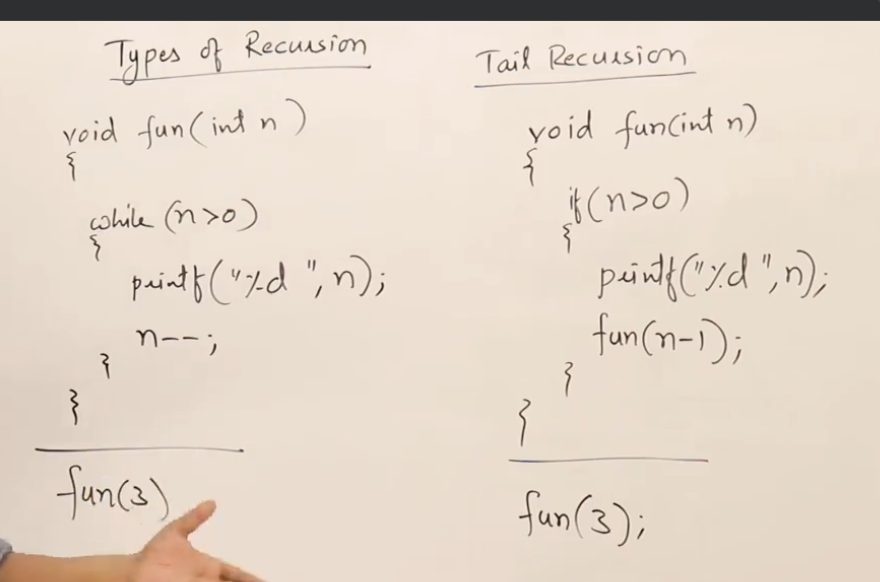 Types of Recursion
void fun(int n)
{
while (n>0)
{
printf("%d ", n);
n--;
}
}
fun(3)
Tail Recursion
void fun(int n)
{
if(n>0)
{
printf("%d ", n);
fun(n-1);
}
}
fun(3);